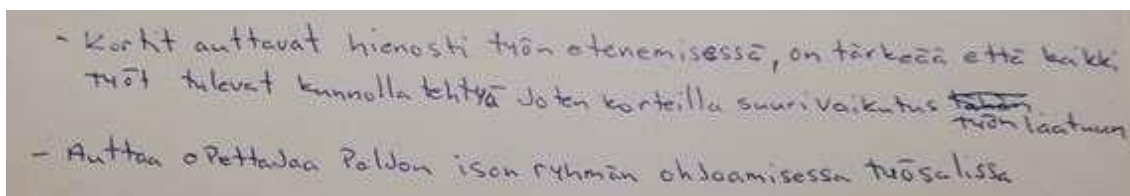 - Kortit auttavat hienosti työn etenemisessä, on tärkeää että kaikki
työt tulevat kunnolla tehtyä Joten korteilla suuri vaikutus
työn laatuun
- Auttaa oPettaJaa PalJon ison ryhmän ohJaamisessa työsalissa